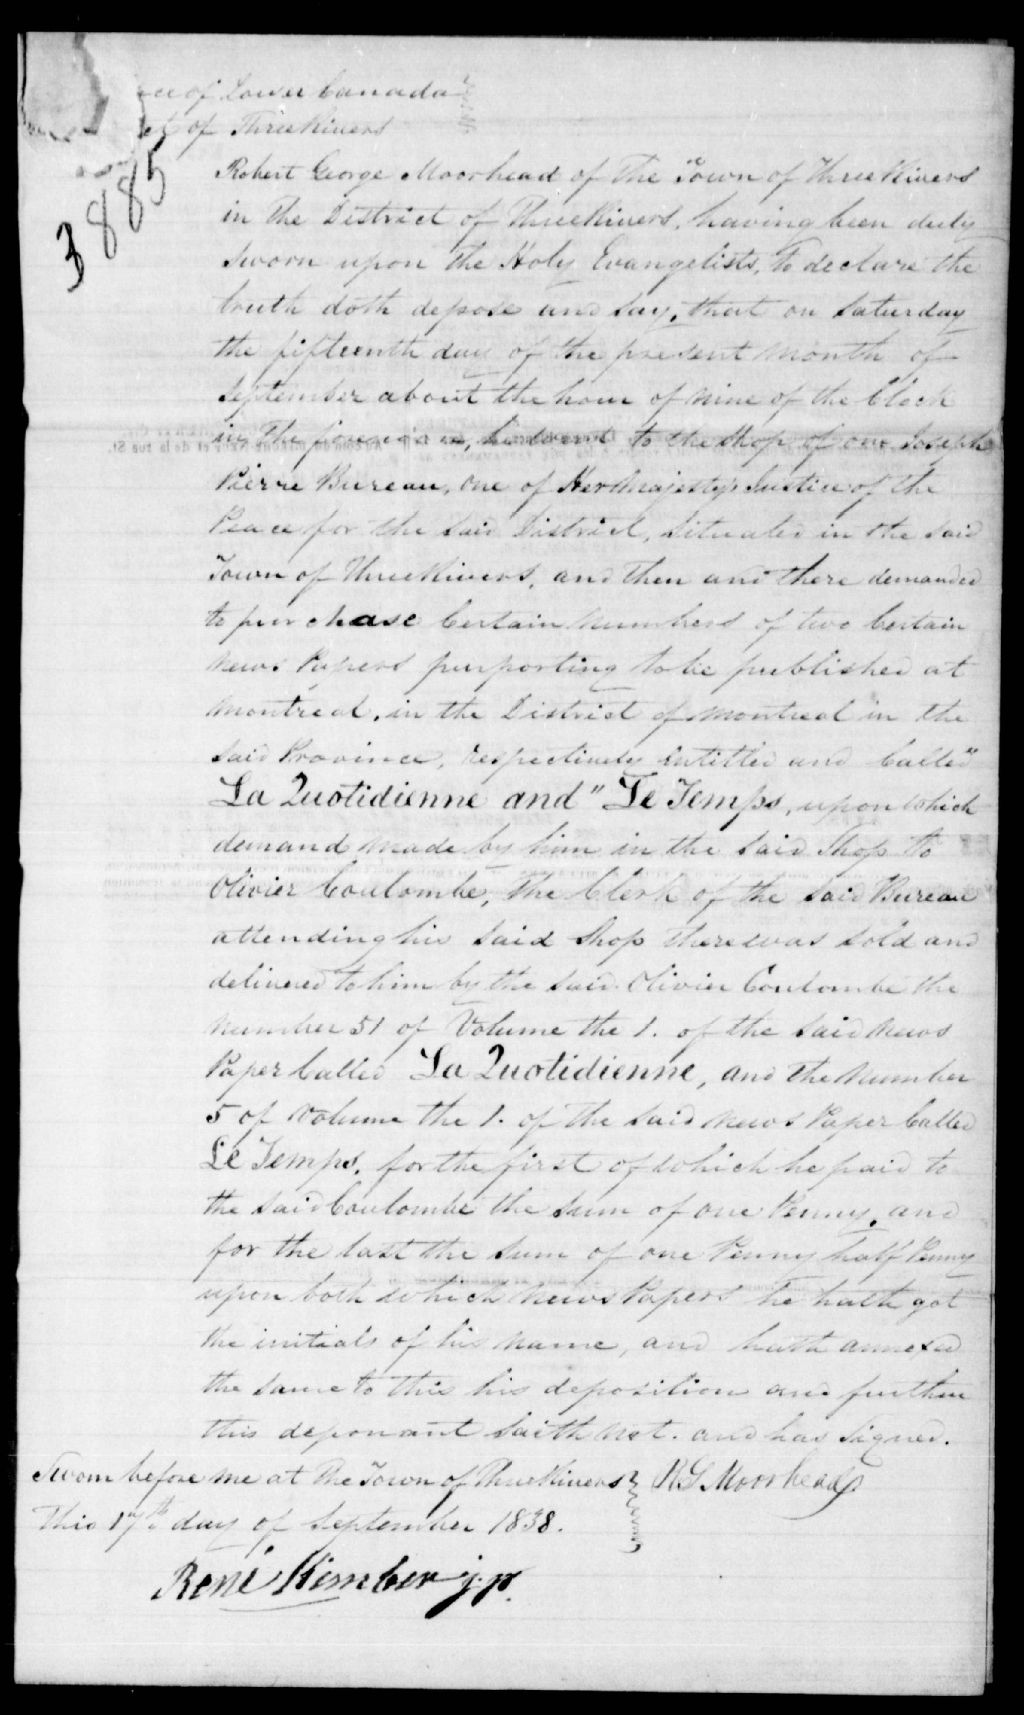 ce of Lower Canada
ct of Three Rivers
3885
Robert George Moorhead of the Town of Three Rivers
in the District of Three Rivers, having been duly
Sworn upon the Holy Evangelists, to declare the
truth doth depose and say, that on Saturday
the fifteenth day of the present month of
September about the hour of nine of the Clock
in the forenoon, he went to the Shop of one Joseph
Pierre Bureau, one of Her Majesty's Justice of the
Peace for the said District, situated in the said
Town of Three Rivers, and then and there demanded
to purchase Certain numbers of two Certain
News Papers purporting to be published at
Montreal, in the District of Montreal in the
said Province, respectively entitled and Called "
La Quotidienne and " Le Temps, upon which
demand made by him in the said Shop to
Olivier Coulombe, the Clerk of the said Bureau
attending his said Shop there was sold and
delivered to him by the said Olivier Coulombe the
Number 51 of Volume the 1. of the said News
Paper Called La Quotidienne, and the Number
5 of Volume the 1. of the said News Paper Called
Le Temps, for the first of which he paid to
the said Coulombe the sum of one Penny, and
for the last the sum of one Penny half Penny
upon both which News Papers he hath got
the initials of his name, and hath annexed
the same to this his deposition and further
this deponant saith not. and has signed.
Sworn before me at the Town of Three Rivers R G Moorhead
This 17th day of September 1838.
René Kimber j.p.